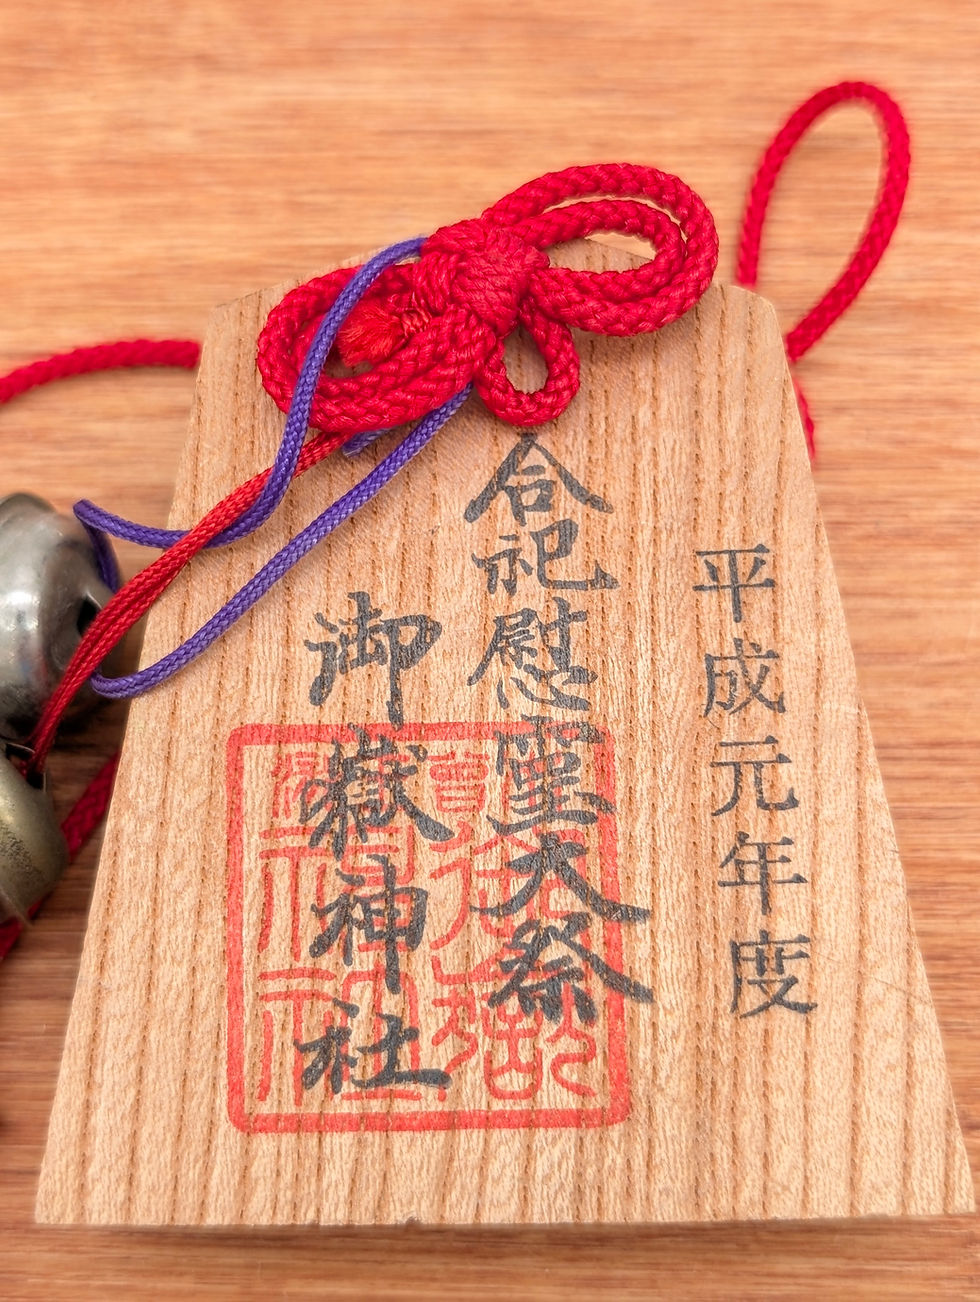 平成元年度
合祀慰霊大祭
御嶽神社